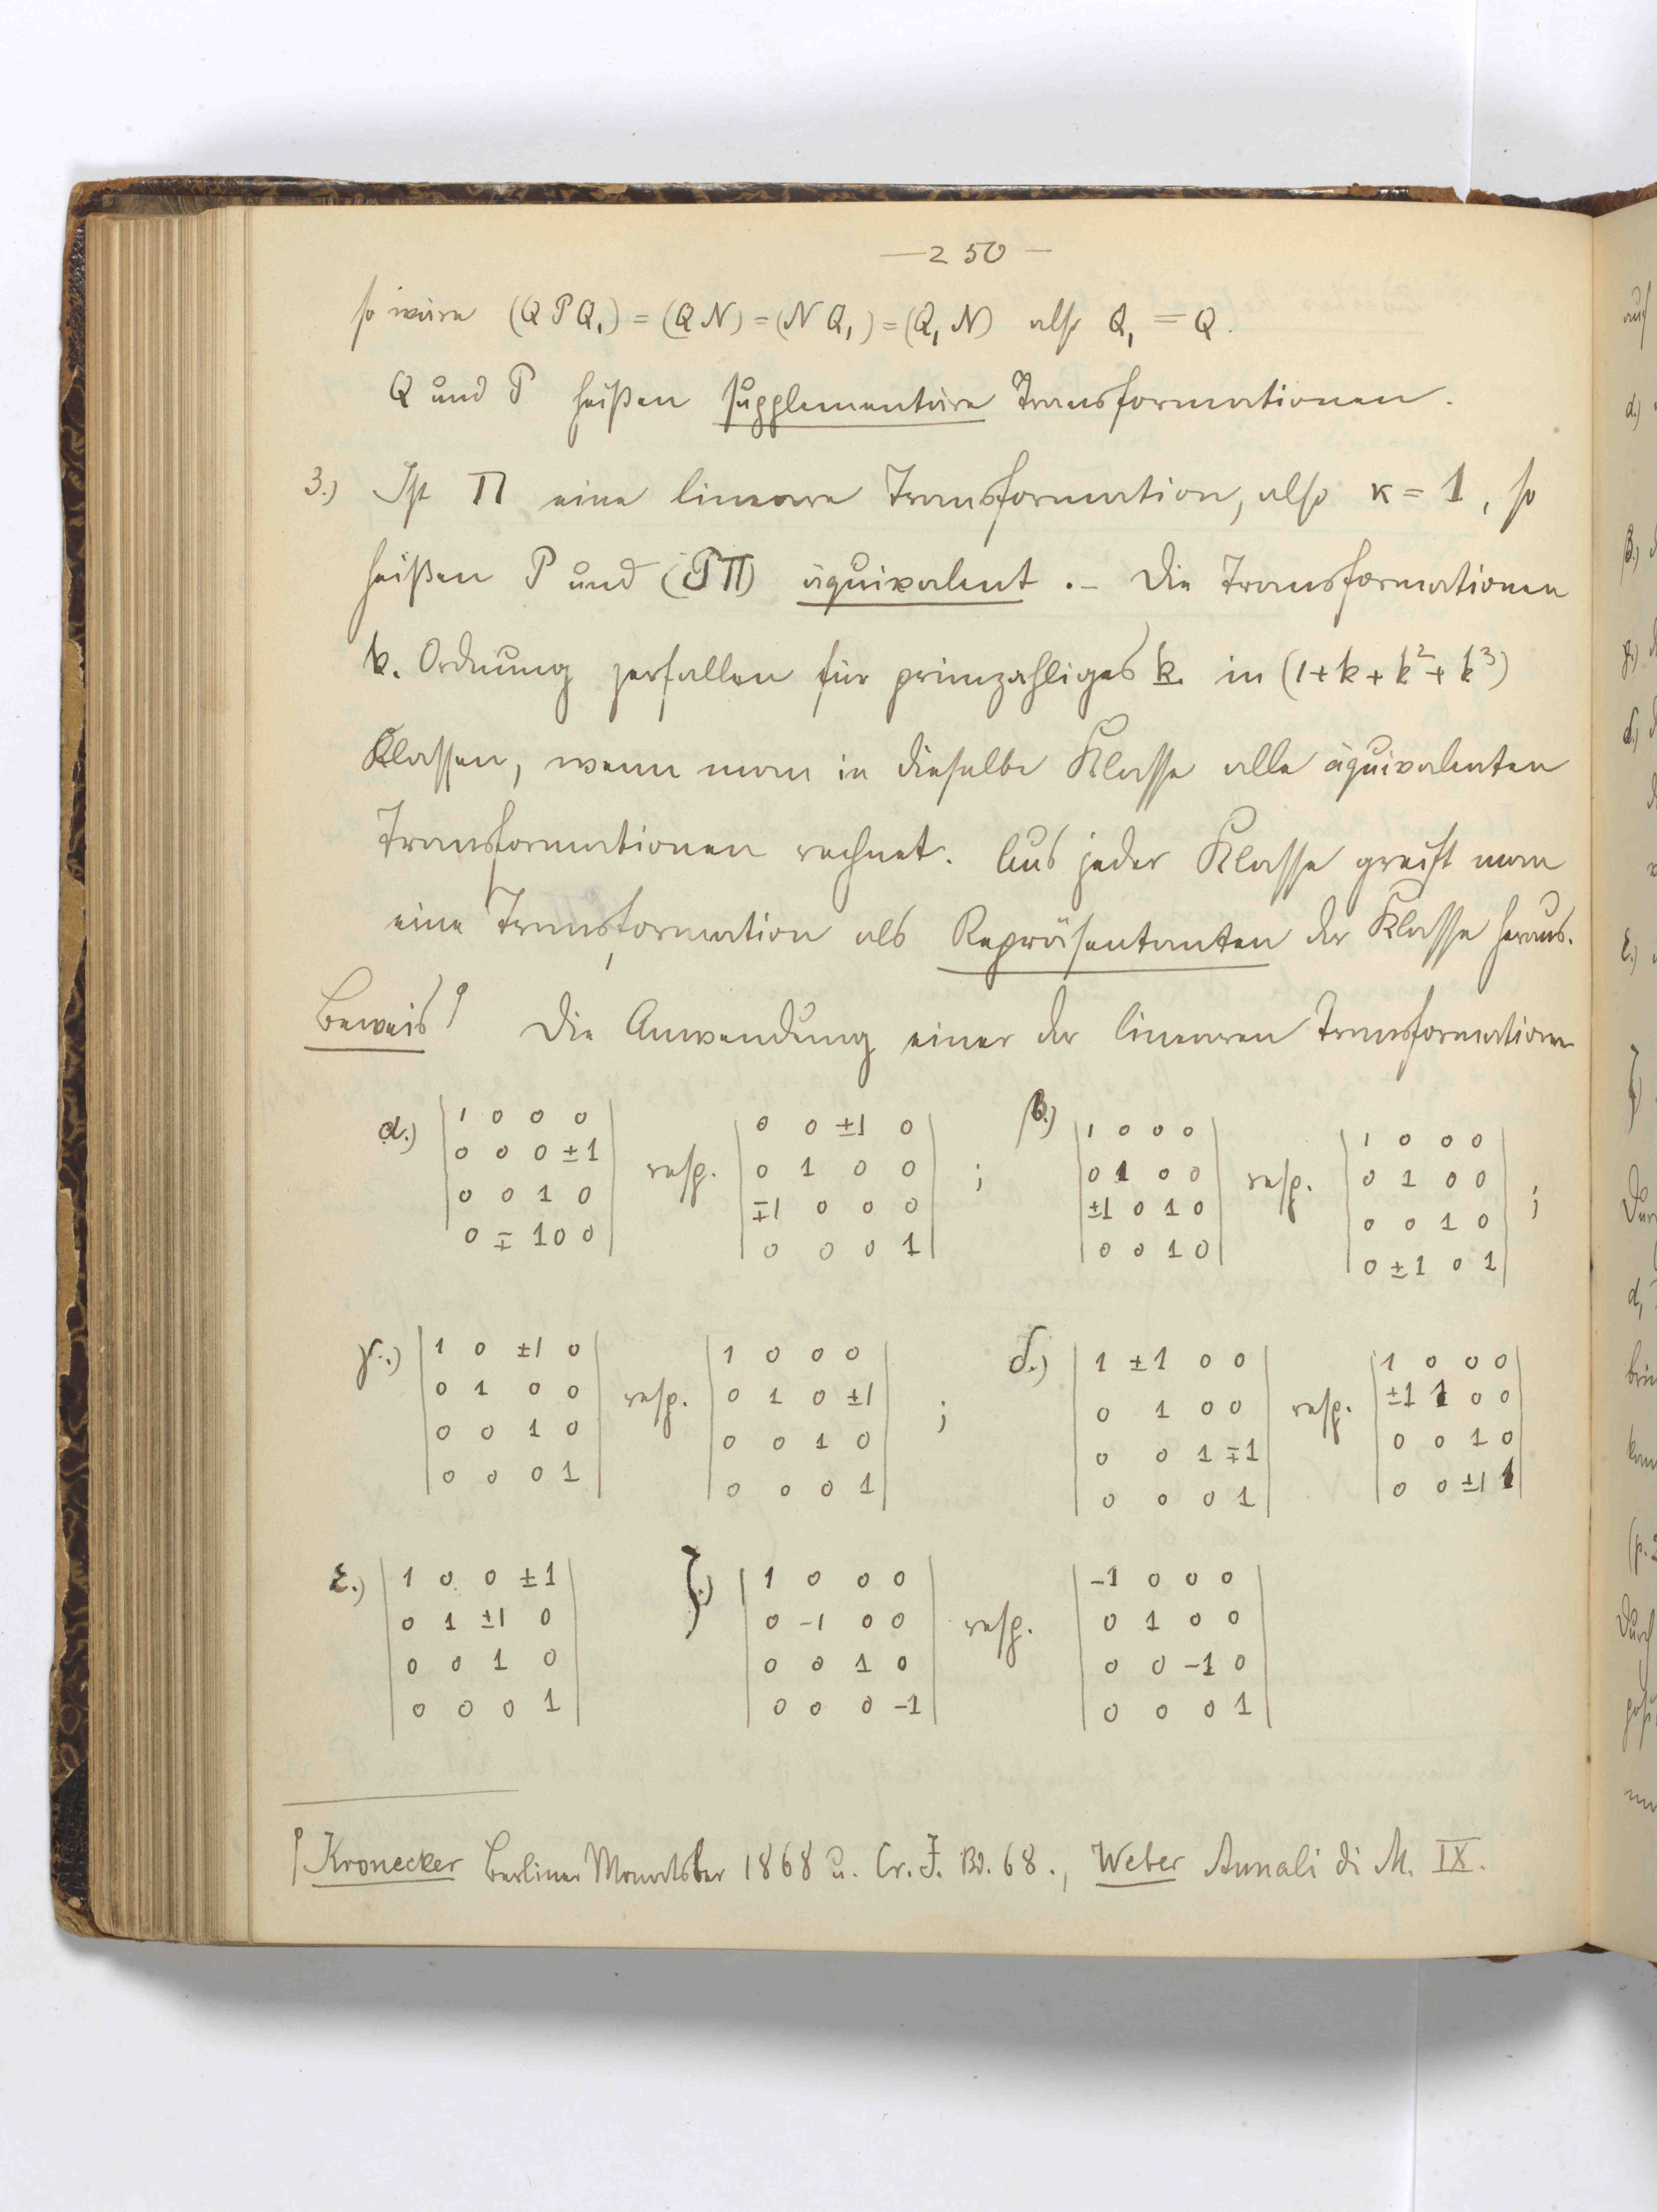 — 250 —
so wäre (QPQ₁) = (QN) = (NQ₁) = (Q₁N) also Q₁ = Q.
Q und P heißen supplementäre Transformationen.
3.) Ist Π eine lineare Transformation, also κ = 1, so
heißen P und (PΠ) äquivalent. – Die Transformationen
k. Ordnung zerfallen für primzahliges k in (1+k+k²+k³)
Klassen, wenn man in dieselbe Klasse alle äquivalenten
Transformationen rechnet. Aus jeder Klasse greift man
eine Transformation als Repräsentanten der Klasse heraus.
Beweis⁹ Die Anwendung einer der linearen Transformationen
α.) | 1 0 0 0 | resp. | 0 0 ±1 0 | ; β.) | 1 0 0 0 | resp. | 1 0 0 0 | ;
| 0 0 0 ±1 | | 0 1 0 0 | | 0 1 0 0 | | 0 1 0 0 |
| 0 0 1 0 | | ∓1 0 0 0 | | ±1 0 1 0 | | 0 0 1 0 |
| 0 ∓1 0 0 | | 0 0 0 1 | | 0 0 1 0 | | 0 ±1 0 1 |
γ.) | 1 0 ±1 0 | resp. | 1 0 0 0 | ; δ.) | 1 ±1 0 0 | resp. | 1 0 0 0 |
| 0 1 0 0 | | 0 1 0 ±1 | | 0 1 0 0 | | ±1 1 0 0 |
| 0 0 1 0 | | 0 0 1 0 | | 0 0 1 ∓1 | | 0 0 1 0 |
| 0 0 0 1 | | 0 0 0 1 | | 0 0 0 1 | | 0 0 ±1 1 |
ε.) | 1 0 0 ±1 | ζ.) | 1 0 0 0 | resp. | -1 0 0 0 |
| 0 1 ±1 0 | | 0 -1 0 0 | | 0 1 0 0 |
| 0 0 1 0 | | 0 0 1 0 | | 0 0 -1 0 |
| 0 0 0 1 | | 0 0 0 -1 | | 0 0 0 1 |
⁹ Kronecker Berliner Monatsber 1868 u. Cr. J. Bd. 68., Weber Annali di M. IX.